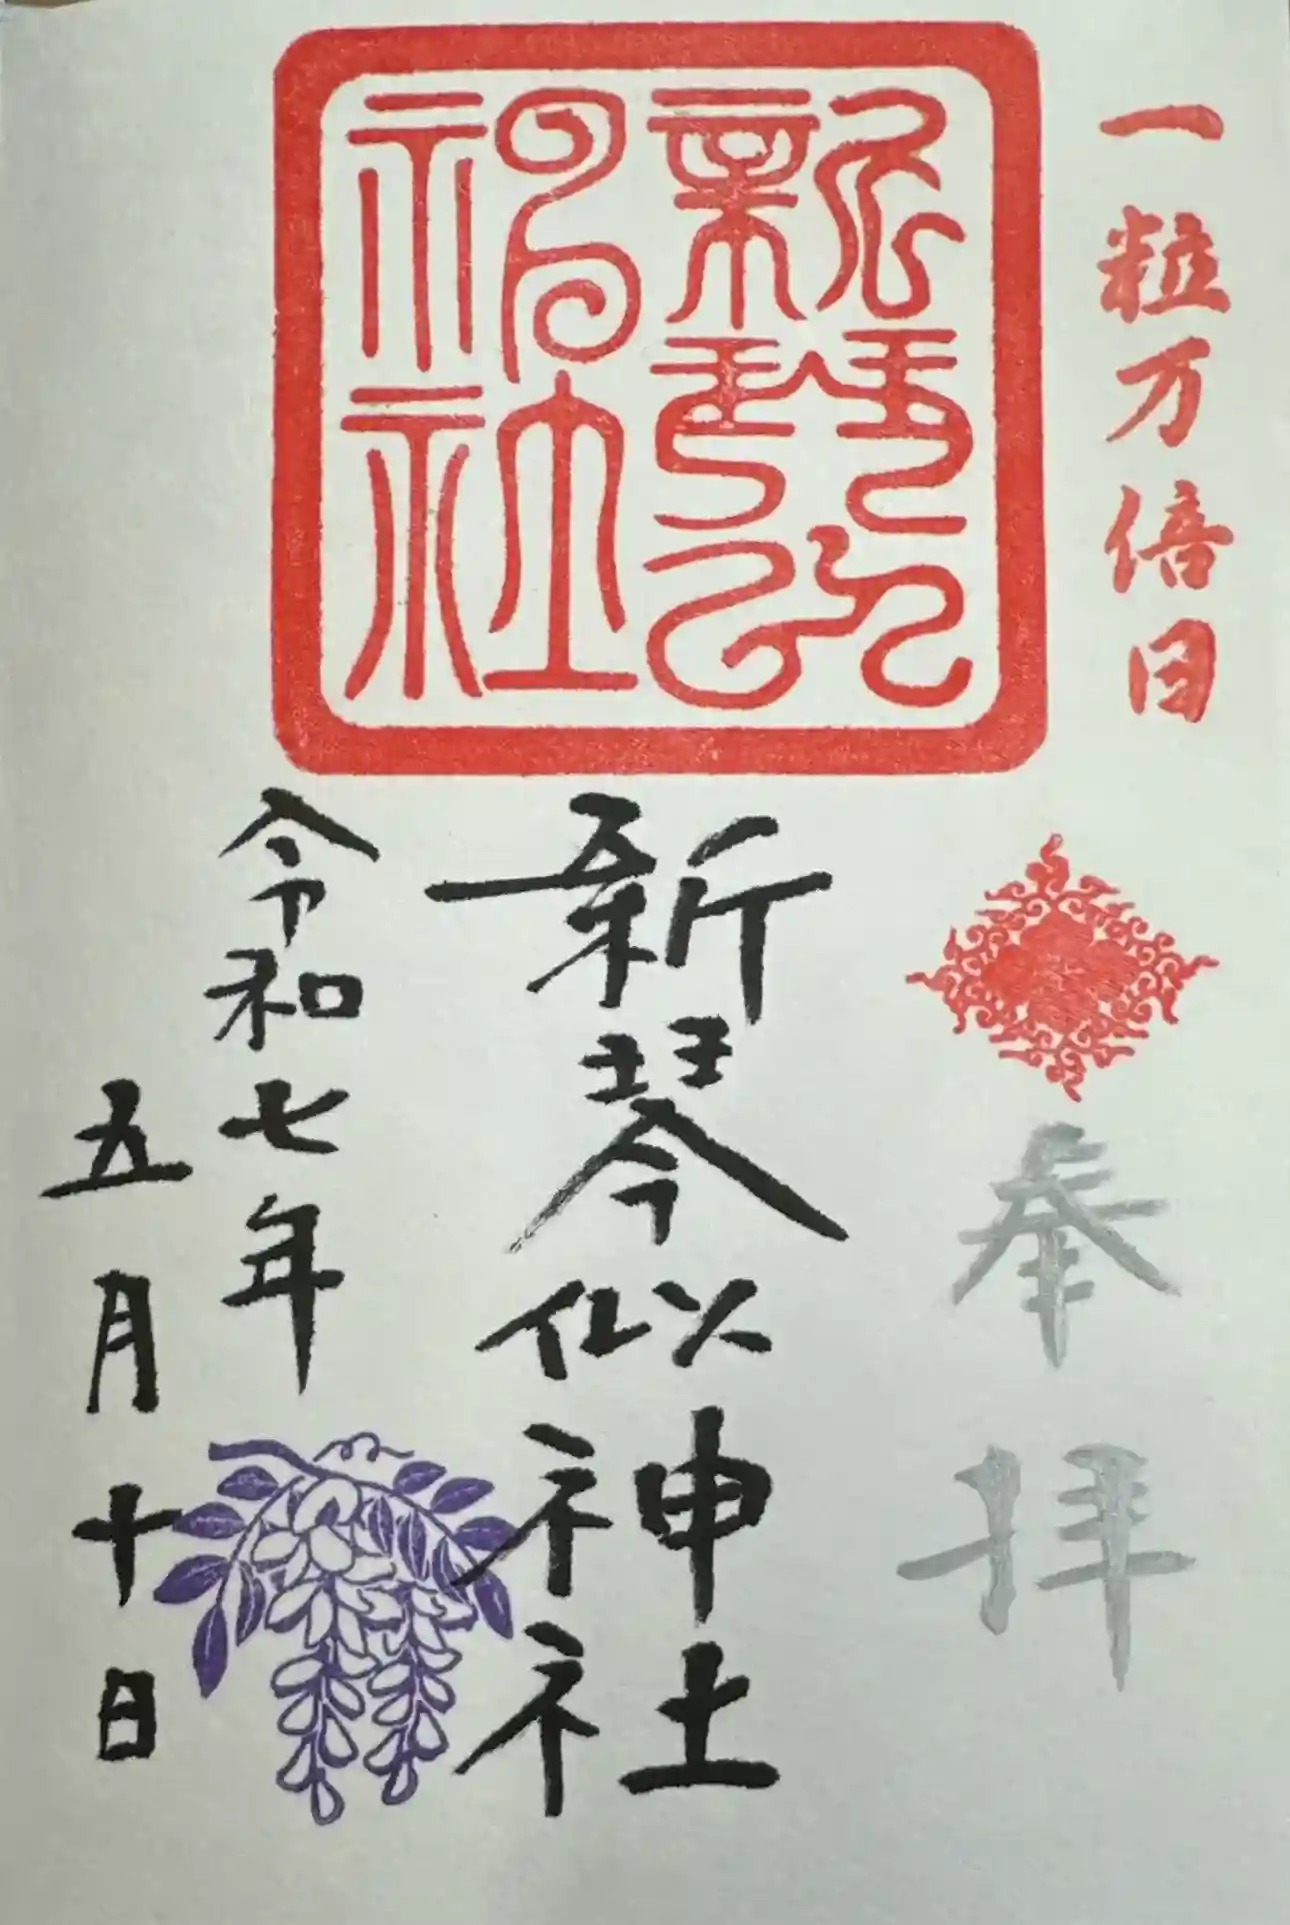 一粒万倍日
奉拝
新琴似
神社
新琴似神社
令和七年
五月十日